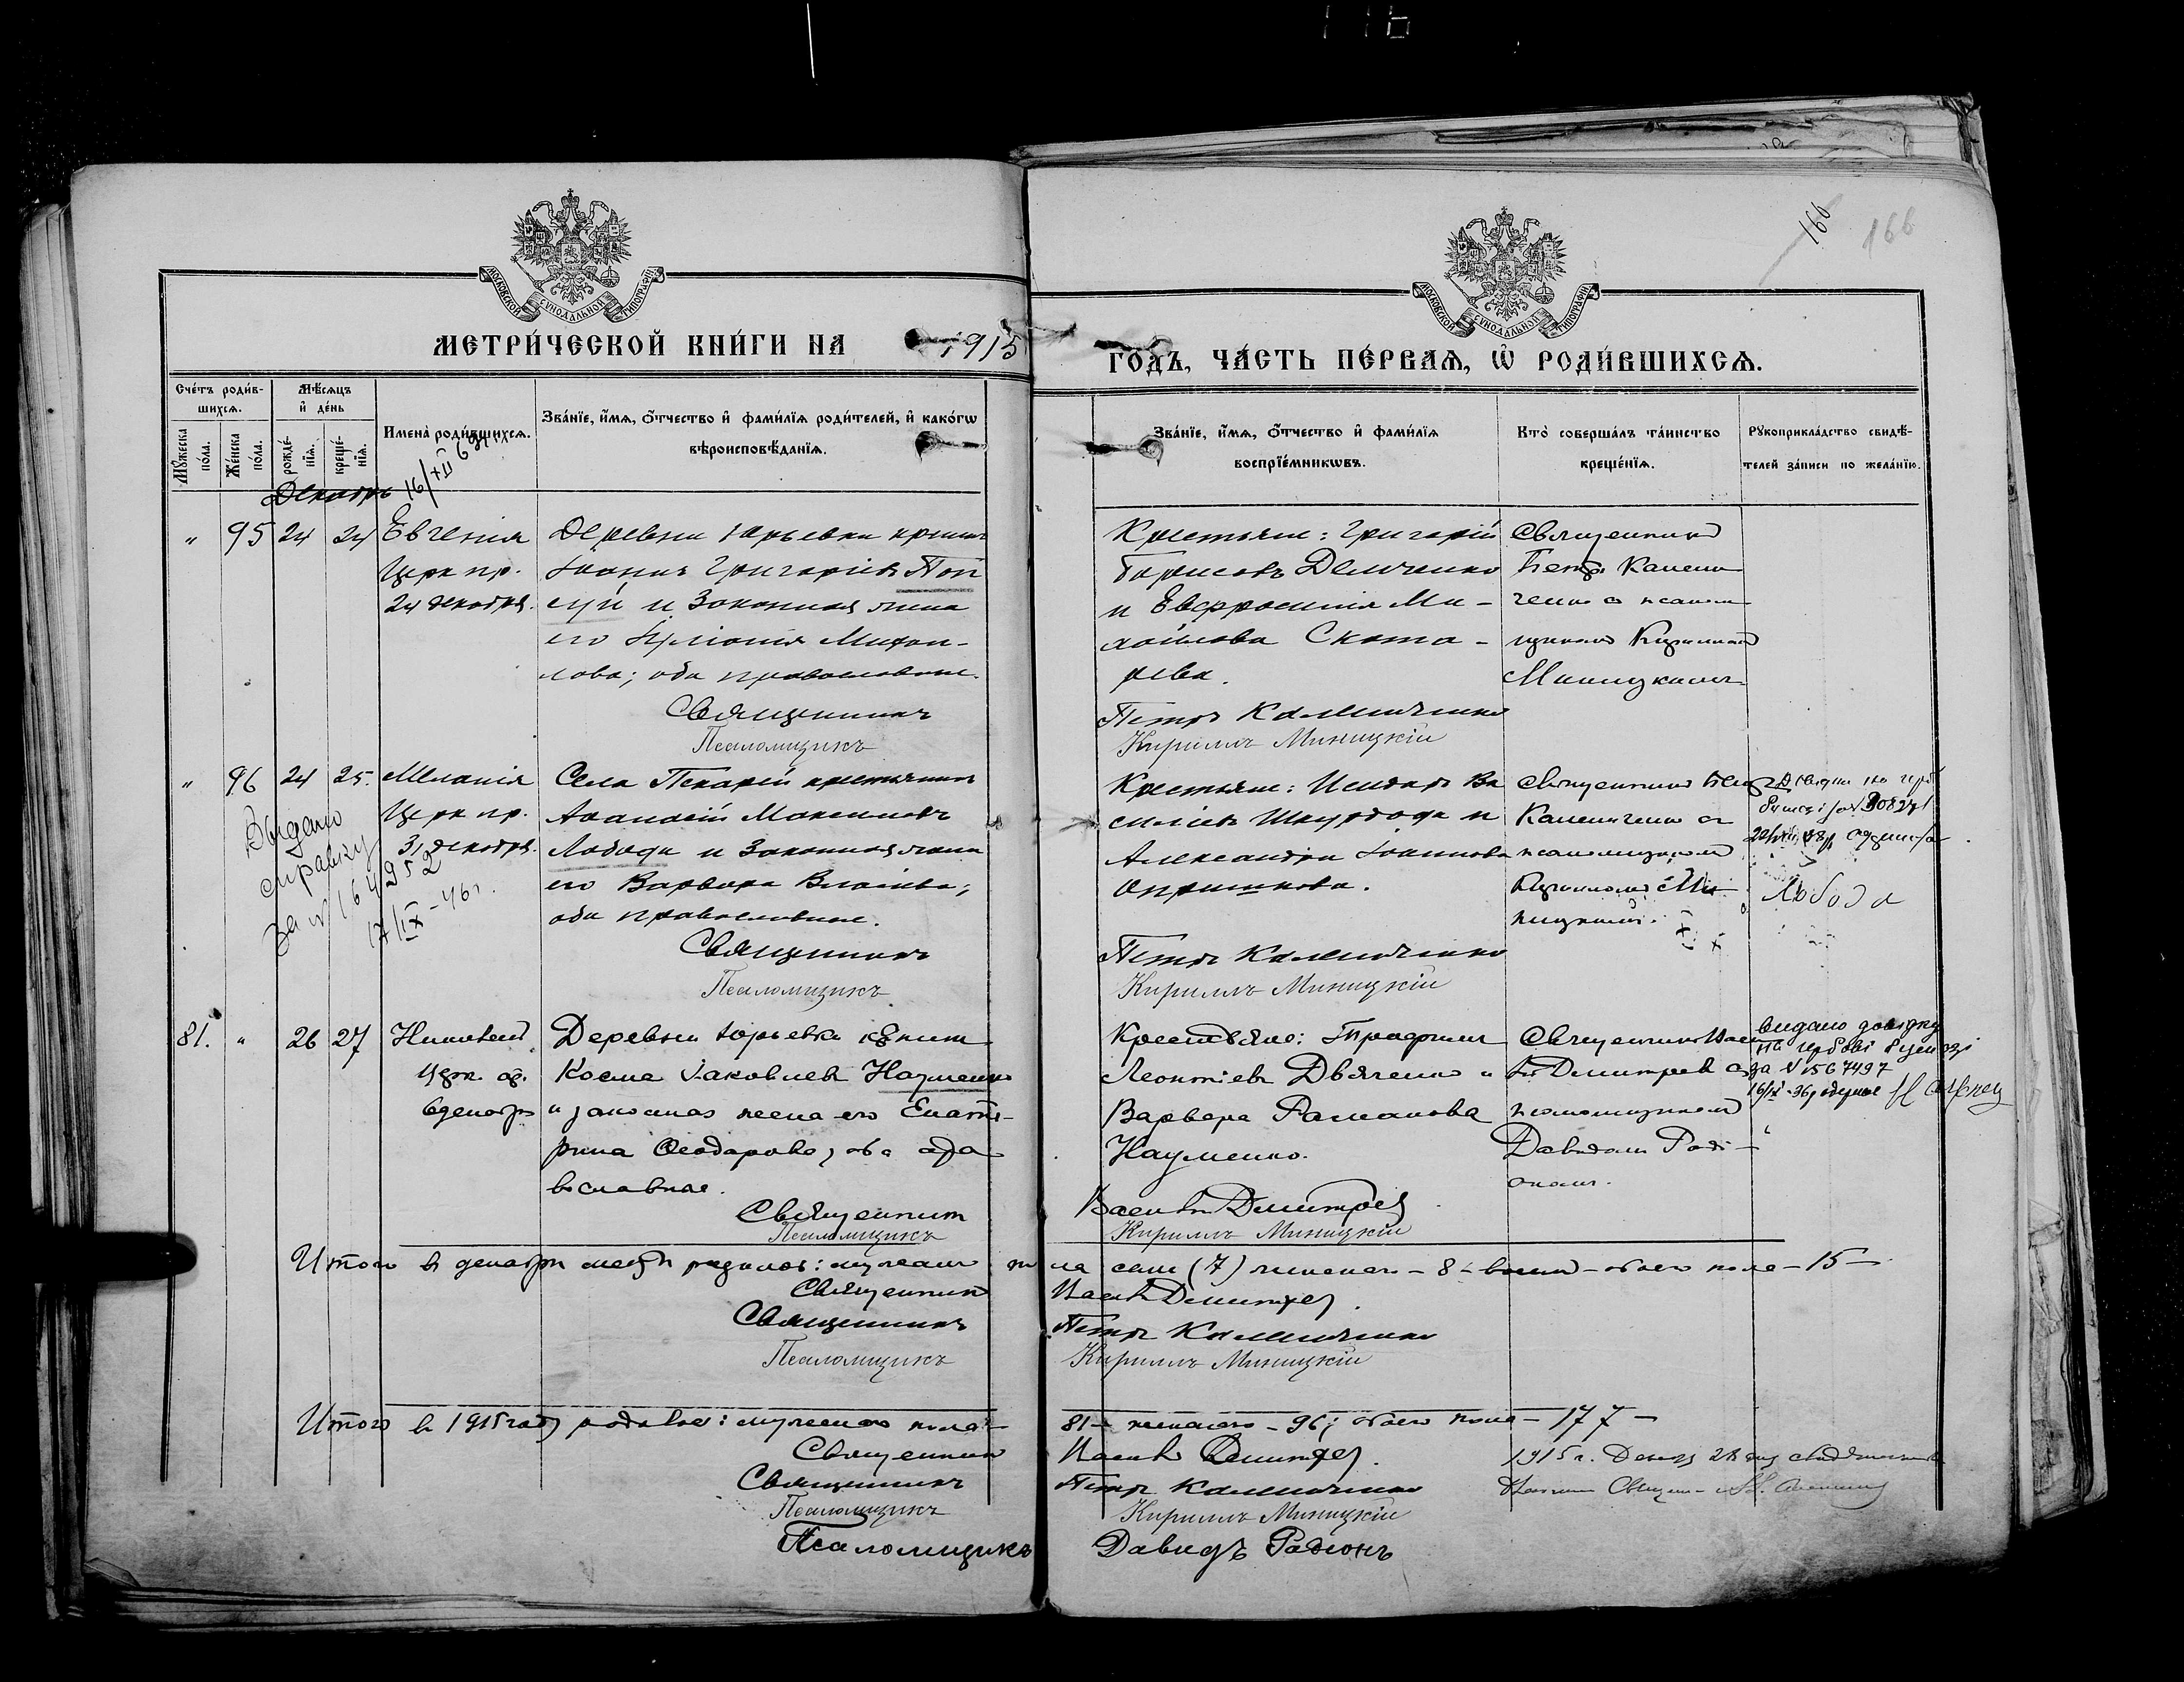 166
166
МОСКОВСКОЙ СѴНОДАЛЬНОЙ ТИПОГРАФІИ
МОСКОВСКОЙ СѴНОДАЛЬНОЙ ТИПОГРАФІИ
МЕТРИ́ЧЕСКОЙ КНИ́ГИ НА 1915
ГО́ДЪ, ЧА́СТЬ ПЕ́РВАѦ, Ѡ҆ РОДИ́ВШИХСѦ.
Сче́тъ роди́в-
шихсѧ.
Мꙋ́жеска по́ла.
Же́нска по́ла.
Мѣ́сѧцъ
и҆ де́нь
рожде́-
нїѧ.
креще́-
нїѧ.
Имена̀ роди́вшихсѧ.
Зва́нїе, и҆́мѧ, ѻ҆́тчество и҆ фами́лїѧ роди́телей, и҆ како́гѡ
вѣроисповѣ́данїѧ.
Зва́нїе, и҆́мѧ, ѻ҆́тчество и҆ фами́лїѧ
воспрїе́мникѡвъ.
Кто̀ соверша́лъ та́инство
креще́нїѧ.
Рꙋкоприкла́дство свидѣ́-
телей за́писи по жела́нїю.
16/XII
Декабрь
" 95 24 24 Евгенія
Церк пр.
24 декабря.
Деревни Юрьевки
Іоаннъ Григоріевъ Поп
и Законная жена
его Михаи-
лова; оба православные.
Священникъ
Псаломщикъ
Крестьяне: Григорій
Борисовъ Демченко
и Евфросинія Ми-
хайлова Скота-
рева.
Петръ Каменченко
Кириллъ Миницкій
Священникъ
Петръ Камен
ченко съ псалом
щикомъ Кирилломъ
Миницкимъ
" 96 24 25. Меланія
Церк пр.
31 декабря.
Села Пекарей крестьянинъ
Аѳанасій Максимовъ
Лобода и Законная жена
его Варвара Власіева;
оба православные.
Священникъ
Псаломщикъ
Крестьяне: Исидоръ Ва
силіевъ и
Александра Іоаннова
Опришкова.
Петръ Каменченко
Кириллъ Миницкій
Священникъ
Каменченко съ
псаломщикомъ
Кирилломъ Ми
ницкимъ.
Лобода
Выдано
справку
за № 164952
17/IX-46 г.
81. " 26 27
Деревни Юрьевки
Косма Іаковлевъ Науменко
и законная жена его Екате-
рина Ѳеодорова, оба пра
вославные.
Священникъ
Псаломщикъ
Крестьяне:
Леонтіевъ Дьяченко и
Варвара Романова
Науменко.
Димитрев
Кириллъ Миницкій
Священникъ
Димитрев съ
псаломщикомъ
Давидомъ Роді-
ономъ.
видано довідку
за № 1567497
Итого в декабре родилось: мужеска пола семь (7) женска - 8 - восемь - обоего пола - 15 -
Священникъ Димитрев.
Священникъ Петръ Каменченко
Псаломщикъ Кириллъ Миницкій
Итого в 1915 году родилось: мужескаго пола - 81 - женскаго - 96; обоего пола - 177 -
Священникъ Димитрев.
Священникъ Петръ Каменченко
Псаломщикъ Кириллъ Миницкій
Псаломщикъ Давидъ Родіонъ
1915 г.